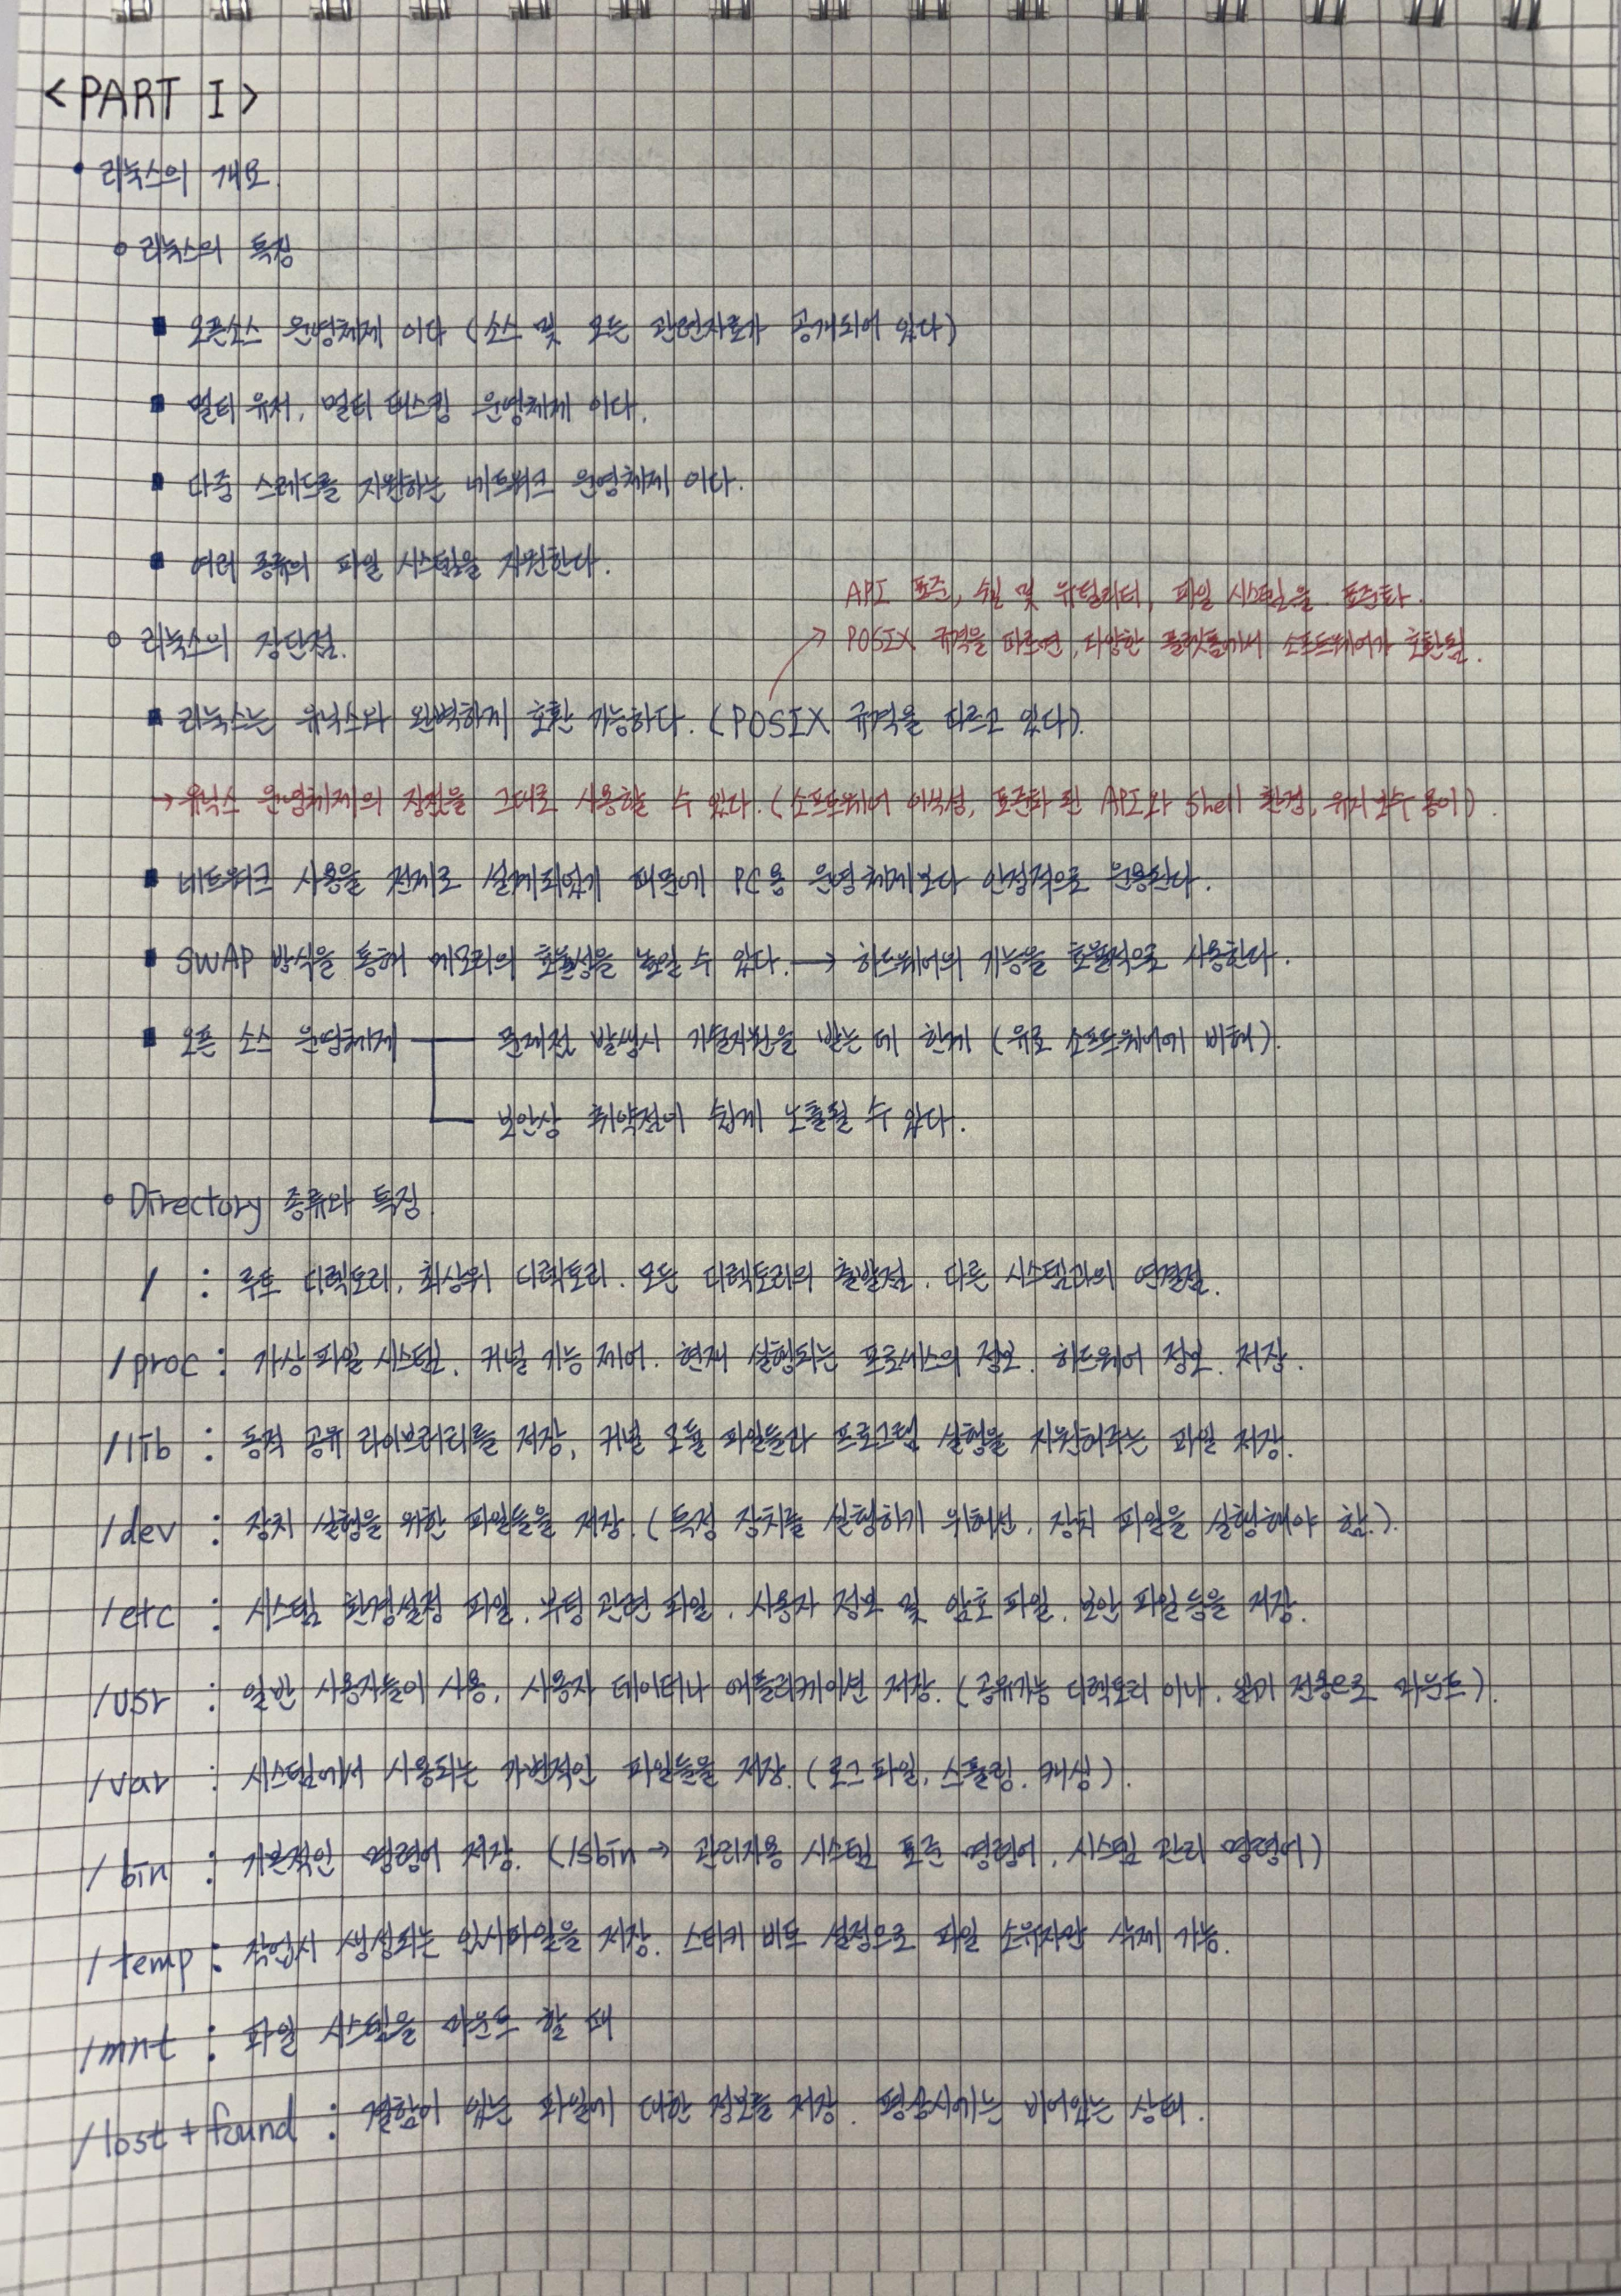 <PART I>
• 리눅스의 개요.
○ 리눅스의 특징
■ 오픈소스 운영체제 이다 (소스 및 모든 관련자료가 공개되어 있다)
■ 멀티 유저, 멀티 태스킹 운영체제 이다.
■ 다중 스레드를 지원하는 네트워크 운영체제 이다.
■ 여러 종류의 파일 시스템을 지원한다.
API 표준, 쉘 및 유틸리티, 파일 시스템을 표준화.
○ 리눅스의 장단점.
→ POSIX 규격을 따르면, 다양한 플랫폼에서 소프트웨어가 호환됨.
■ 리눅스는 유닉스와 완벽하게 호환 가능하다. (POSIX 규격을 따르고 있다).
→ 유닉스 운영체제의 장점을 그대로 사용할 수 있다. (소프트웨어 이식성, 표준화 된 API와 Shell 환경, 유지보수 용이).
■ 네트워크 사용을 전제로 설계되었기 때문에 PC용 운영체제보다 안정적으로 운용된다.
■ SWAP 방식을 통해 메모리의 효율성을 높일 수 있다. → 하드웨어의 기능을 효율적으로 사용한다.
■ 오픈 소스 운영체제 문제점 발생시 기술지원을 받는 데 한계 (유료 소프트웨어에 비해).
보안상 취약점이 쉽게 노출될 수 있다.
○ Directory 종류와 특징.
/ : 루트 디렉토리, 최상위 디렉토리. 모든 디렉토리의 출발점. 다른 시스템과의 연결점.
/proc : 가상 파일 시스템, 커널 기능 제어. 현재 실행되는 프로세스의 정보. 하드웨어 정보. 저장.
/lib : 동적 공유 라이브러리를 저장, 커널 모듈 파일들과 프로그램 실행을 지원해주는 파일 저장.
/dev : 장치 실행을 위한 파일들을 저장. (특정 장치를 실행하기 위해선, 장치 파일을 실행해야 함.).
/etc : 시스템 환경설정 파일, 부팅 관련 파일, 사용자 정보 및 암호 파일, 보안 파일 등을 저장.
/usr : 일반 사용자들이 사용, 사용자 데이터나 애플리케이션 저장. (공유가능 디렉토리 이나, 읽기 전용으로 마운트).
/var : 시스템에서 사용되는 가변적인 파일들을 저장. (로그 파일, 스풀링, 캐싱).
/bin : 기본적인 명령어 저장. (/sbin → 관리자용 시스템 표준 명령어, 시스템 관리 명령어)
/temp : 작업시 생성되는 임시파일을 저장. 스티키 비트 설정으로 파일 소유자만 삭제 가능.
/mnt : 파일 시스템을 마운트 할 때
/lost + found : 결함이 있는 파일에 대한 정보를 저장. 평상시에는 비어있는 상태.